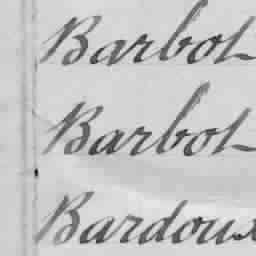 Barbot
Barbot
Bardoux